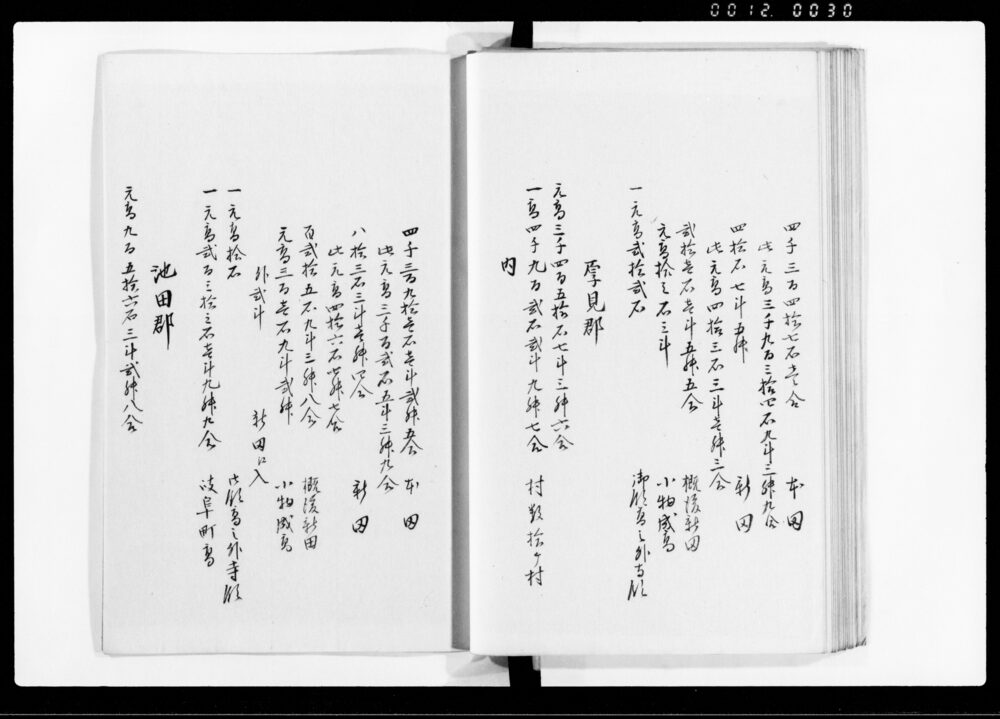 0012. 0030
四千三百四拾七石壱合 本田
此元高三千九百三拾四石九斗三升九合
四拾石七斗五升 新田
此元高四拾三石三斗壱升三合
弐拾壱石壱斗五升五合 概後新田
元高拾三石三斗 小物成高
一元高弐拾弐石 御領高之外寺領
厚見郡
元高三千四百五拾石七斗三升六合
一高四千九百弐石弐斗九升七合 村数拾ケ村
内
四千三百九拾壱石壱斗弐升五合 本田
此元高三千百弐石五斗三升九合
八拾三石三斗壱升四合 新田
此元高四拾六石七升七合
百弐拾五石九斗三升八合 概後新田
元高三百壱石九斗弐升 小物成高
外弐斗 新田口入
一元高拾石 御領高之外寺領
一元高弐百三拾三石壱斗九升九合 岐阜町高
池田郡
元高九百五拾六石三斗弐升八合